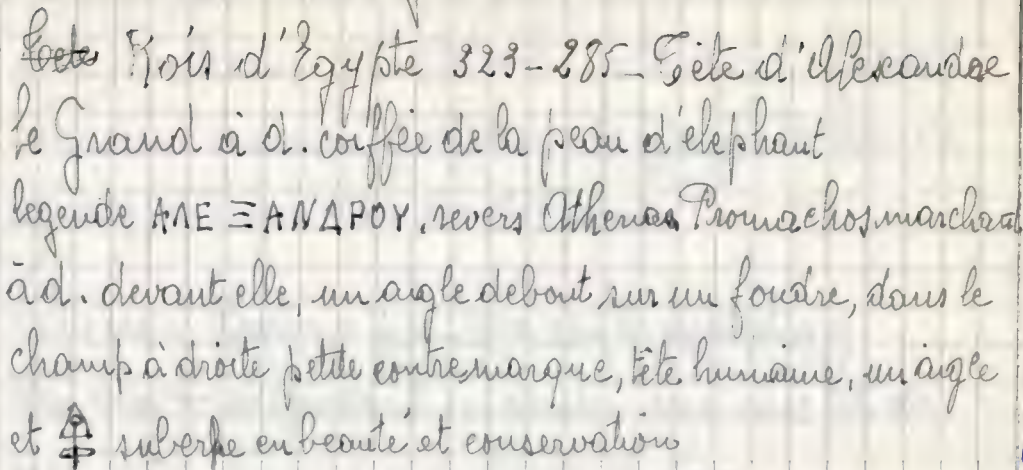 Rois d'Egypte 323-285- Tête d'Alexandre
le Grand à d. coiffée de la peau d'elephant
legende ΑΛΕΞΑΝΔΡΟΥ, revers Athenas Promachos marchant
à d. devant elle, un aigle debout sur un foudre, dans le
champ à droite petite contremarque, tête humaine, un aigle
et superbe en beauté et conservation